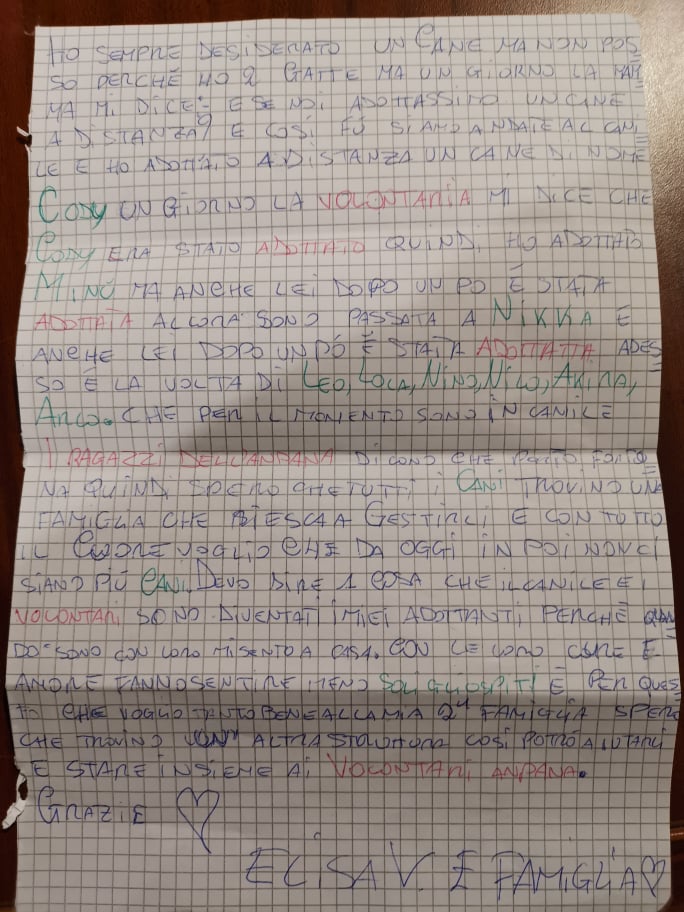 HO SEMPRE DESIDERATO UN CANE MA NON POS
SO PERCHÉ HO 2 GATTE MA UN GIORNO LA MAM
MA MI DICE: E SE NOI ADOTTASSIMO UN CANE
A DISTANZA? E COSÌ FÙ SIAMO ANDATE AL CANI
LE E HO ADOTTATO A DISTANZA UN CANE DI NOME
CODY UN GIORNO LA VOLONTARIA MI DICE CHE
CODY ERA STATO ADOTTATO QUINDI HO ADOTTATO
MINÙ MA ANCHE LEI DOPO UN PÒ È STATA
ADOTTATA ALLORA SONO PASSATA A NIKKA E
ANCHE LEI DOPO UN PÒ È STATA ADOTTATTA ADES
SO È LA VOLTA DI LEO, LOLA, NINO, NILO, AKIRA,
ARGO. CHE PER IL MOMENTO SONO IN CANILE
I RAGAZZI DELL'ANPANA DICONO CHE PORTO FORTU
NA QUINDI SPERO CHE TUTTI I CANI TROVINO UNA
FAMIGLIA CHE RIESCA A GESTIRLI E CON TUTTO
IL CUORE VOGLIO CHE DA OGGI IN POI NON CI
SIANO PIÙ CANI. DEVO DIRE 1 COSA CHE IL CANILE E I
VOLONTARI SONO DIVENTATI I MIEI ADOTTANTI PERCHÉ QUAN
DO SONO CON LORO MI SENTO A CASA. CON LE LORO CURE E
AMORE FANNO SENTIRE MENO SOLI GLI OSPITI È PER QUES
TO CHE VOGLIO TANTO BENE ALLA MIA 2ª FAMIGLIA SPERO
CHE TROVINO UN ALTRA STRUTTURA COSÌ POTRÒ AIUTARLI
E STARE INSIEME AI VOLONTARI ANPANA.
GRAZIE ♡
ELISA V. E FAMIGLIA ♡